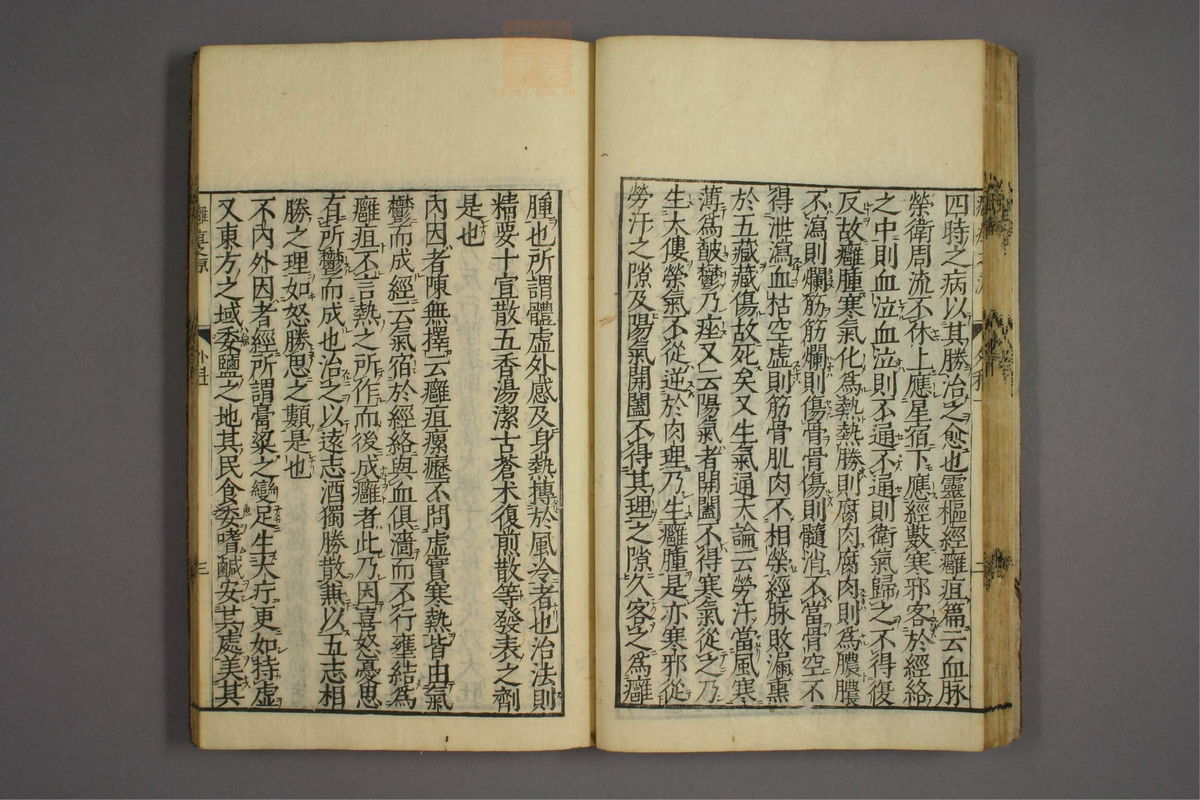 四時之病以其勝治之愈也靈樞經癰疽篇云血脉
榮衛周流不休上應星宿下應經數寒邪客於經絡
之中則血泣血泣則不通不通則衛氣歸之不得復
反故癰腫寒氣化爲熱熱勝則腐肉腐肉則爲膿膿
不瀉則爛筋筋爛則傷骨骨傷則髓消不當骨空不
得泄瀉血枯空虛則筋骨肌肉不相榮經脉敗漏熏
於五藏藏傷故死矣又生氣通天論云勞汗當風寒
薄爲皶鬱乃痤又云陽氣者開闔不得寒氣從之乃
生大僂榮氣不從逆於肉理乃生癰腫是亦寒邪從
勞汗之隙及陽氣開闔不得其理之隙久客之爲癰
腫也所謂體虛外感及身熱摶於風冷者也治法則
精要十宣散五香湯潔古蒼术復煎散等發表之劑
是也
內因者陳無擇云癰疽瘰癧不問虛實寒熱皆由氣
鬱而成經云氣宿於經絡與血俱濇而不行壅結爲
癰疽不言熱之所作而後成癰者此乃因喜怒憂思
有所鬱而成也治之以遠志酒獨勝散兼以五志相
勝之理如怒勝思之類是也
不內外因者經所謂膏粱之變足生大疔更如持虛
又東方之域委鹽之地其民食委嗜鹹安其處美其
三